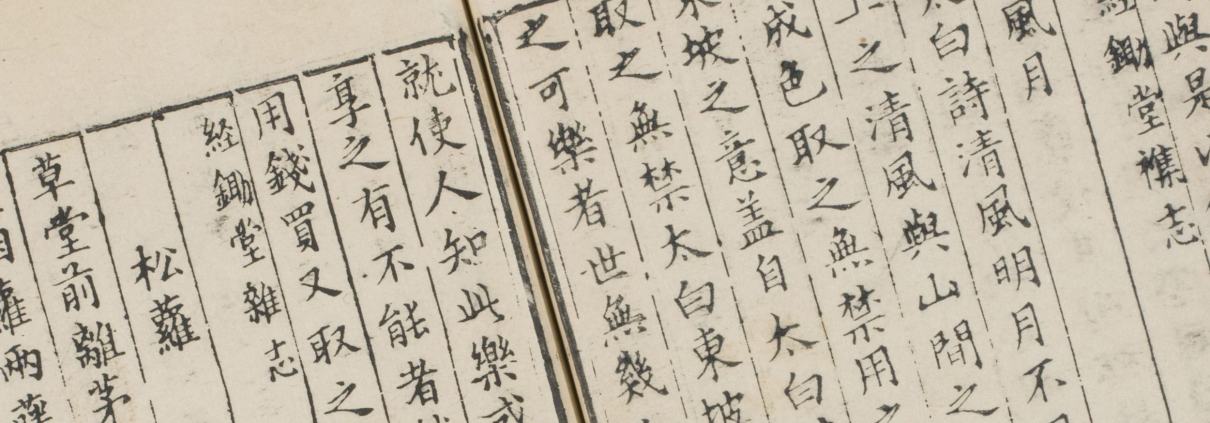 與是
経鋤堂襍志
風月
太白詩清風明月不
之清風與山間之
成色取之無禁用之
東坡之意盖自太白
取之無禁太白東坡
之可樂者世無幾
就使人知此樂或
享之有不能者
用錢買又取之
経鋤堂雜志
松蘿
草堂前離茅
蘿兩